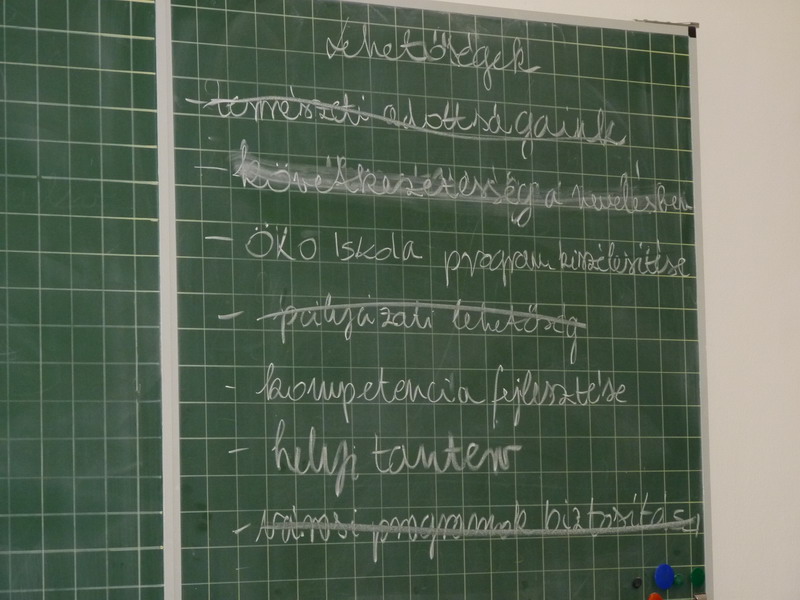 Lehetőségek
- természeti adottságaink
- következetesség a nevelésben
- ÖKO iskola program kiszélesítése
- pályázati lehetőség
- kompetencia fejlesztése
- helyi tanterv
- városi programok biztosítása